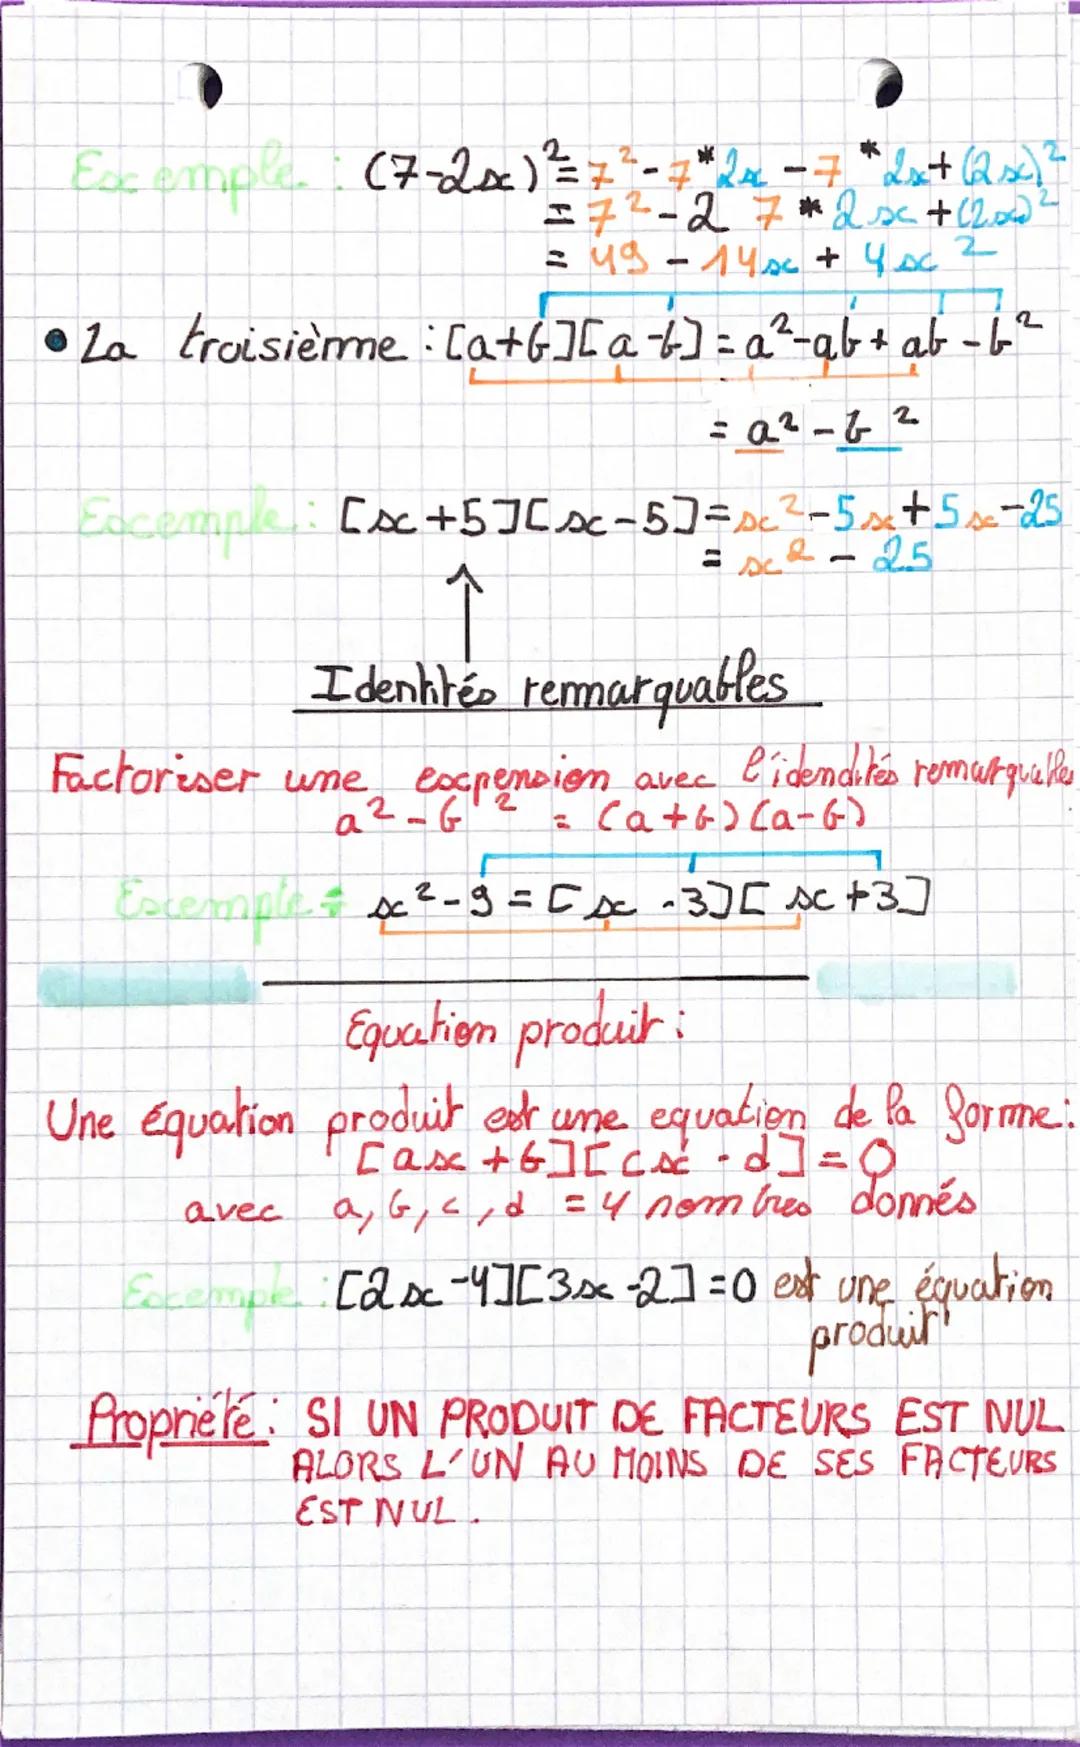 Exemple : (7-2x)²= 7²-7*2x -7*2x+(2x)²
= 7²-2 7*2x+(2x)²
= 49 - 14x + 4x²
• La troisième : [a+b][a-b] = a²-ab+ab-b²
= a² - b²
Exemple : [x+5][x-5]= x²-5x+5x-25
= x² - 25
Identités remarquables
Factoriser une expension avec l'idendités remarquables
a²-b² = (a+b)(a-b)
Exemple : x²-9 = [x-3][x+3]
Equation produit :
Une équation produit est une equation de la forme :
[ax+b][cx-d]=0
avec a, b, c, d = 4 nombres donnés
Exemple : [2x-4][3x-2]=0 est une équation
produit
Propriété : SI UN PRODUIT DE FACTEURS EST NUL
ALORS L'UN AU MOINS DE SES FACTEURS
EST NUL.